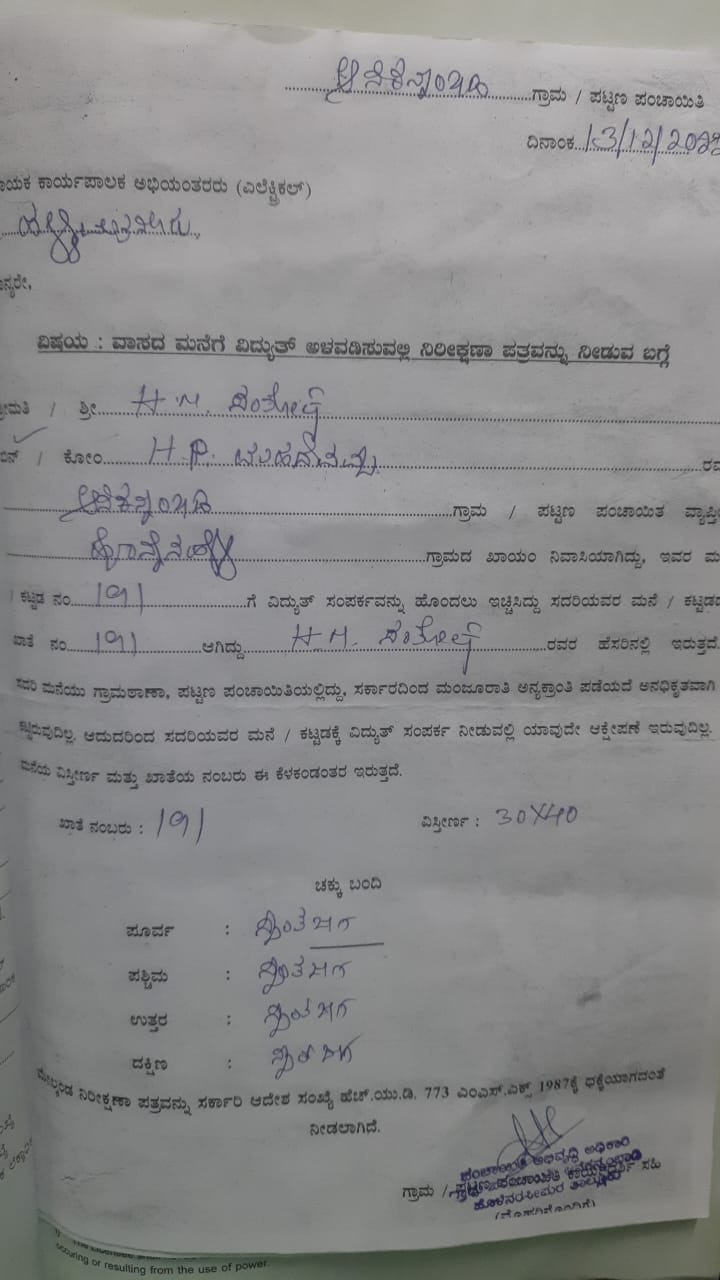 ಆನೆಕನ್ನಂಬಾಡಿ ಗ್ರಾಮ / ಪಟ್ಟಣ ಪಂಚಾಯಿತಿ
ದಿನಾಂಕ 13/12/2022
ಾಯಕ ಕಾರ್ಯಪಾಲಕ ಅಭಿಯಂತರರು (ಎಲೆಕ್ಟ್ರಿಕಲ್)
ನ್ಯರೇ,
ವಿಷಯ : ವಾಸದ ಮನೆಗೆ ವಿದ್ಯುತ್ ಅಳವಡಿಸುವಲ್ಲಿ ನಿರೀಕ್ಷಣಾ ಪತ್ರವನ್ನು ನೀಡುವ ಬಗ್ಗೆ
ೀಮತಿ / ಶ್ರೀ H.M. ಸಂತೋಷ್
ಬಿನ್ / ಕೋಂ H.P. ರವ
ಆನೆಕನ್ನಂಬಾಡಿ ಗ್ರಾಮ / ಪಟ್ಟಣ ಪಂಚಾಯಿತ ವ್ಯಾಪ್ತಿ
ಗ್ರಾಮದ ಖಾಯಂ ನಿವಾಸಿಯಾಗಿದ್ದು, ಇವರ ಮ
/ ಕಟ್ಟಡ ನಂ 191 ಗೆ ವಿದ್ಯುತ್ ಸಂಪರ್ಕವನ್ನು ಹೊಂದಲು ಇಚ್ಚಿಸಿದ್ದು ಸದರಿಯವರ ಮನೆ / ಕಟ್ಟಡದ
ಖಾತೆ ನಂ 191 ಆಗಿದ್ದು H.M. ಸಂತೋಷ್ ರವರ ಹೆಸರಿನಲ್ಲಿ ಇರುತ್ತದೆ.
ಸದರಿ ಮನೆಯು ಗ್ರಾಮಠಾಣಾ, ಪಟ್ಟಣ ಪಂಚಾಯಿತಿಯಲ್ಲಿದ್ದು, ಸರ್ಕಾರದಿಂದ ಮಂಜೂರಾತಿ ಅನ್ಯಕ್ರಾಂತಿ ಪಡೆಯದೆ ಅನಧಿಕೃತವಾಗಿ
ಕಟ್ಟಿರುವುದಿಲ್ಲ. ಆದುದರಿಂದ ಸದರಿಯವರ ಮನೆ / ಕಟ್ಟಡಕ್ಕೆ ವಿದ್ಯುತ್ ಸಂಪರ್ಕ ನೀಡುವಲ್ಲಿ ಯಾವುದೇ ಆಕ್ಷೇಪಣೆ ಇರುವುದಿಲ್ಲ.
ಮನೆಯ ವಿಸ್ತೀರ್ಣ ಮತ್ತು ಖಾತೆಯ ನಂಬರು ಈ ಕೆಳಕಂಡಂತರ ಇರುತ್ತದೆ.
ಖಾತೆ ನಂಬರು : 191 ವಿಸ್ತೀರ್ಣ : 30X40
ಚಕ್ಕು ಬಂದಿ
ಪೂರ್ವ : ಸ್ವಂತ ಜಾಗ
ಪಶ್ಚಿಮ : ಸ್ವಂತ ಜಾಗ
ಉತ್ತರ : ಸ್ವಂತ ಜಾಗ
ದಕ್ಷಿಣ : ಸ್ವಂತ ಜಾಗ
ಮೇಲ್ಕಂಡ ನಿರೀಕ್ಷಣಾ ಪತ್ರವನ್ನು ಸರ್ಕಾರಿ ಆದೇಶ ಸಂಖ್ಯೆ ಹೆಚ್.ಯು.ಡಿ. 773 ಎಂಎಸ್.ಎಕ್ಸ್ 1987ಕ್ಕೆ ಧಕ್ಕೆಯಾಗದಂತೆ
ನೀಡಲಾಗಿದೆ.
ಪಂಚಾಯಿತಿ ಅಭಿವೃದ್ಧಿ ಅಧಿಕಾರಿ
ಗ್ರಾಮ / ಪಟ್ಟಣ ಪಂಚಾಯಿತಿ ಕಾರ್ಯದರ್ಶಿ ಸಹಿ
ಹೊಳೆನರಸೀಪುರ ತಾಲ್ಲೂಕು
(ಮೊಹರಿನೊಂದಿಗೆ)
occuring or resulting from the use of power.